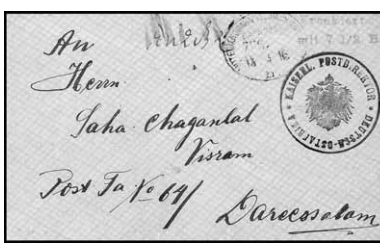 An
Herrn
Saha Chaganlal
Visram
Post Ta No 64/
Daressalam
Frankiert
mit 7 1/2 H
KAISERL. POSTDIREKTOR
DEUTSCH-OSTAFRIKA